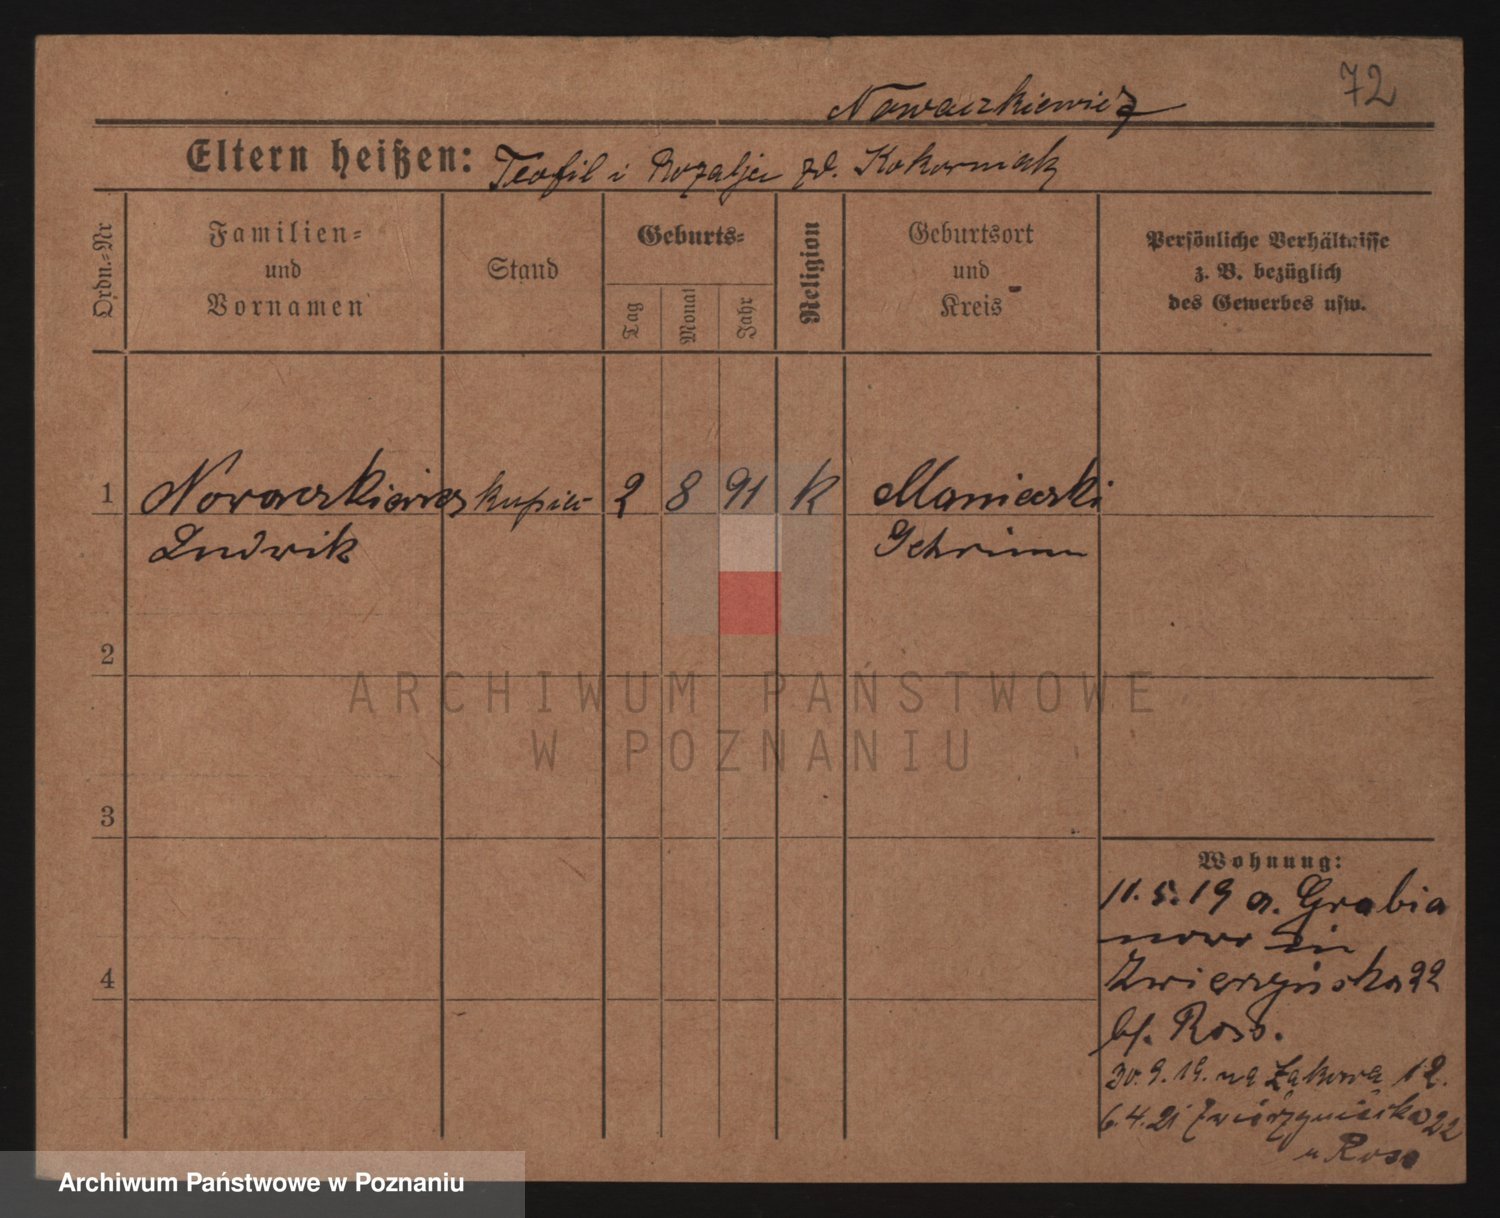 72
Nowaczkiewicz
Eltern heißen: Teofil i Rozalja zd. Kokorniak
Ordn.-Nr
Familien-
und
Vornamen
Stand
Geburts-
Tag
Monat
Jahr
Religion
Geburtsort
und
Kreis
Persönliche Verhältnisse
z. B. bezüglich
des Gewerbes usw.
1 Nowaczkiewicz kupiec 2 8 91 K Manieczki
Ludwik Schrimm
2
3
4
Wohnung:
11.5.19 a. Grabia
nowo in
Zwierzyńska 22
bf. Ross.
30.9.19. na Łąkowa 12.
6.4.21 Zwierzyniecka 22
u Ross
ARCHIWUM PAŃSTWOWE
W POZNANIU
Archiwum Państwowe w Poznaniu